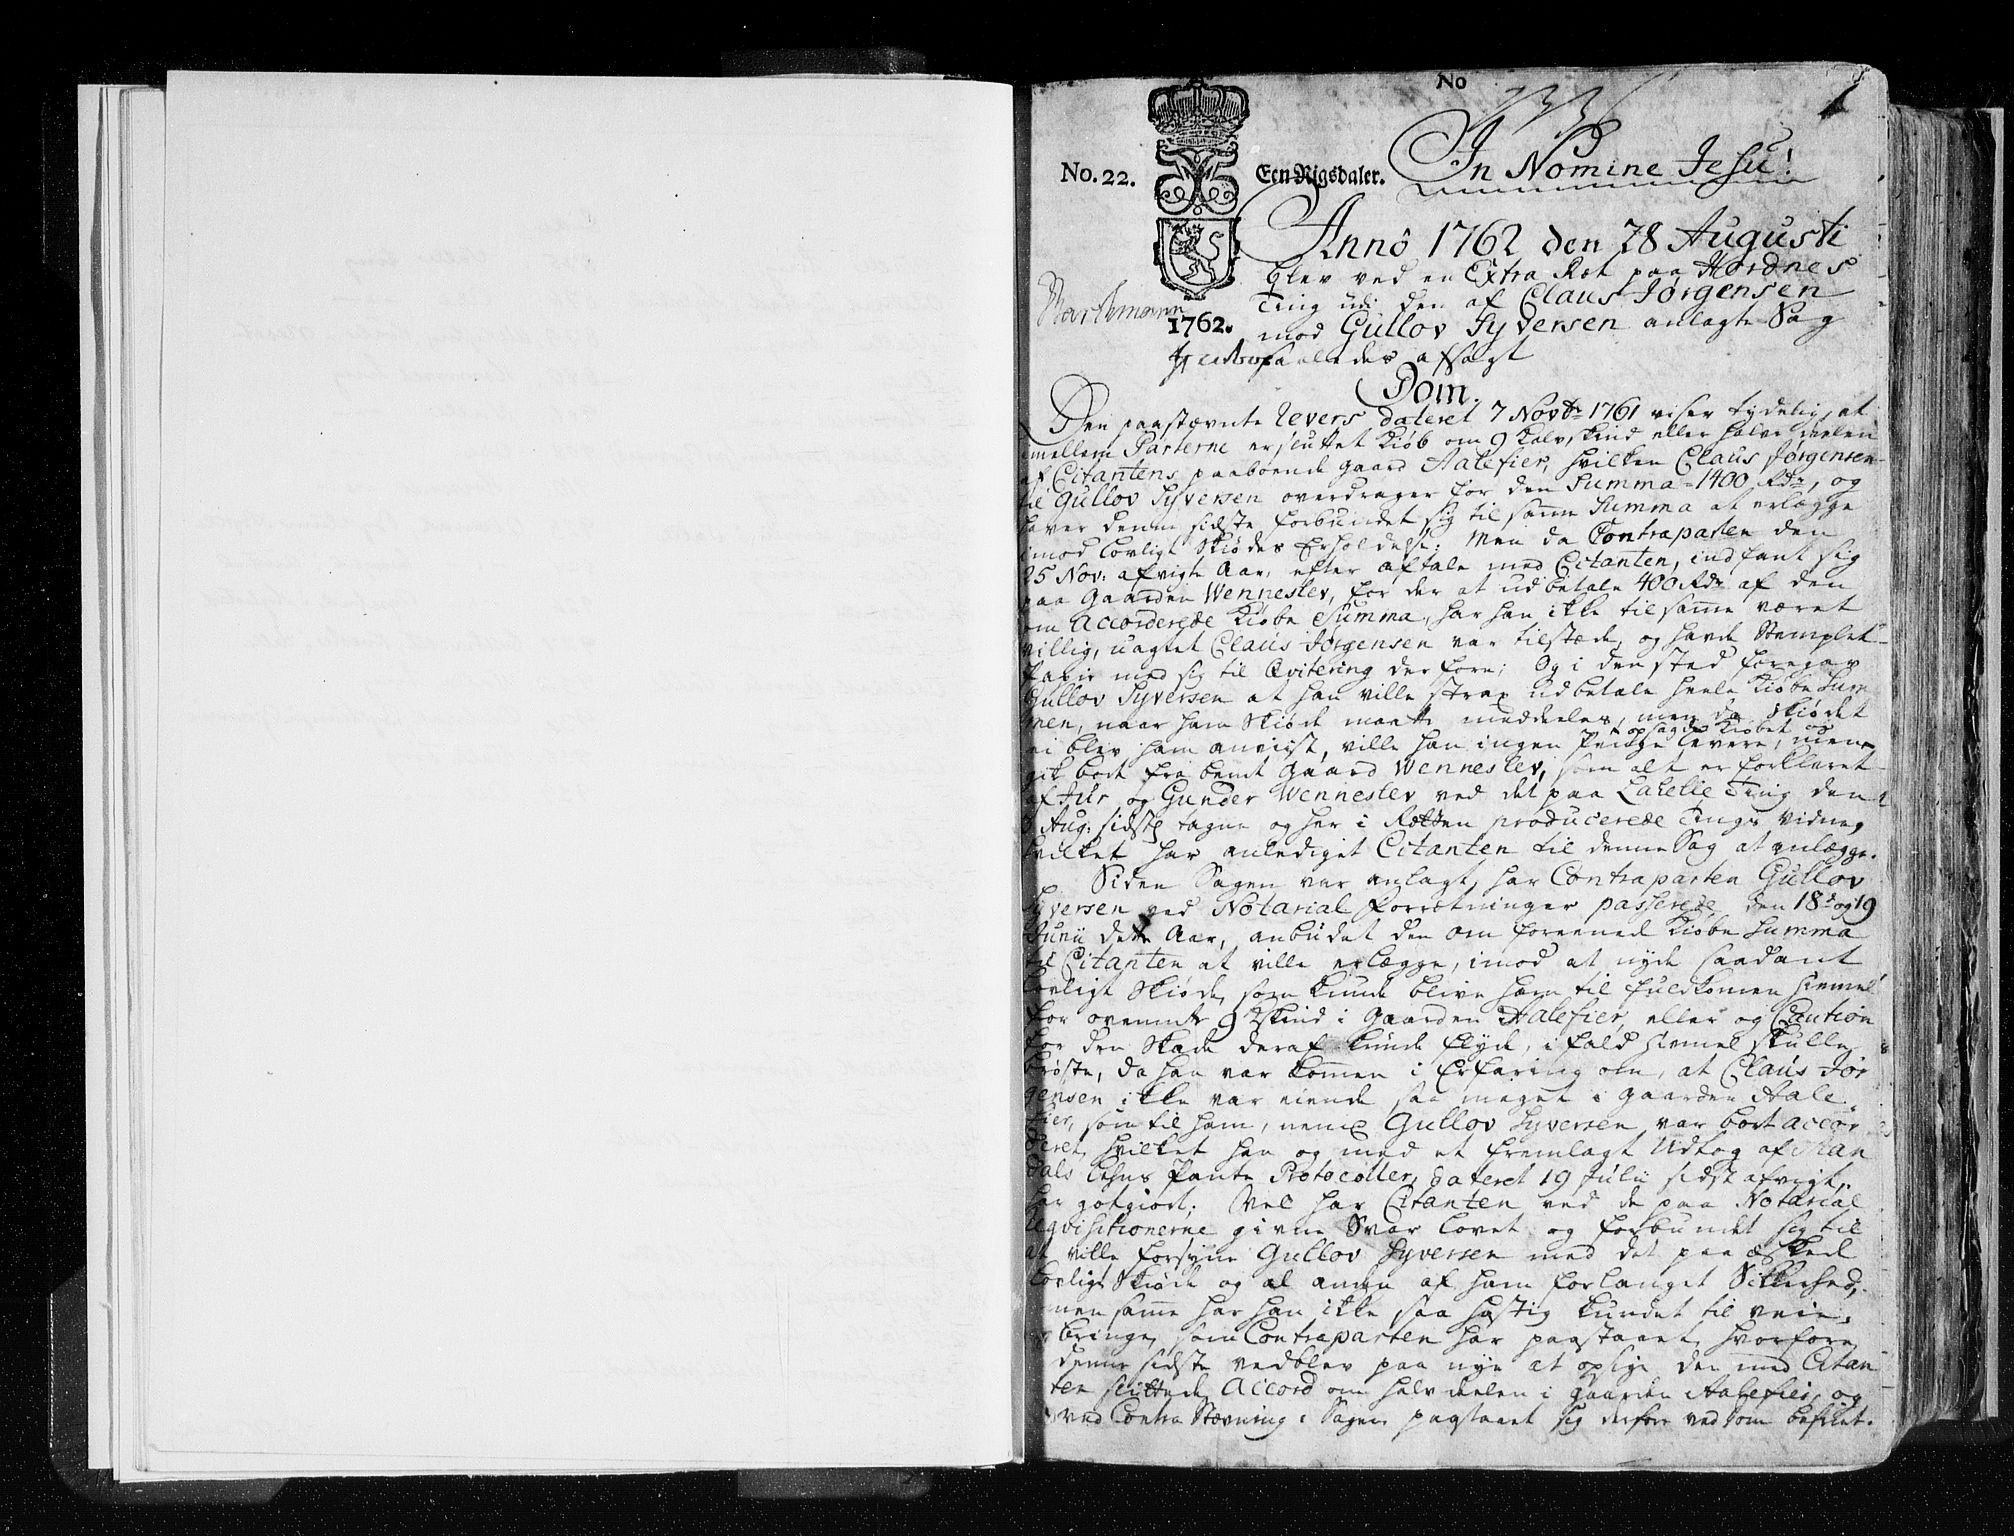 No
1
No. 22.
Een Rigsdaler.
In Nomine Jesu!
Anno 1762 den 28 Augusti
blev ved en Extra Ræt paa Hardnes
Ting udi den af Claus Jørgensen
1762.
mod Gullov Syversen anlagte Sag
saaledes afsagt
Dom.
Den paastævnte Revers dateret 7 Novbr 1761 viser tydelig, at
imellem Parterne er sluttet Kiøb om 9 Kalvskind eller halve deelen
af Citantens paaboende gaard Aalefier, hvilken Claus Jørgensen
til Gullov Syversen overdrager for den Summa 1400 Rdr, og
haver denne sidste forbundet sig til samme Summa at erlægge
imod lovligt Skiødes Erholdelse: Men da Contraparten den
25 Nov: afvigte Aar, efter aftale med Citanten, indfant sig
paa Gaarden Wenneslev, for der at udbetale 400 Rdr af den
om Accorderede Kiøbe Summa, har han ikke til samme været
villig, uagtet Claus Jørgensen var tilstæde, og havde Stemplet
Papir med sig til Qvitering derfore; Og i den sted foregav
Gullov Syversen at han ville strax udbetale heele Kiøbe Sum
men, naar ham Skiøde maatte meddeeles, men da Skiødet
opsagde Kiøbet og
ei blev ham anviist, ville han ingen Penge levere, men
gik bort fra bemt Gaard Wenneslev, som alt er forklaret
af Jur og Gunder Wenneslev ved det paa Lahelle Ting den
3 Aug: sidst tagne og her i Rætten producerede Tings vidne,
hvilket har anlediget Citanten til denne Sag at anlægge.
Siden Sagen var anlagt, har Contraparten Gullov
Syversen ved Notarial Forretninger passerede den 18de og 19
Junii dette Aar, anbudet den om foreenede Kiøbe Summa
til Citanten at ville erlægge, imod at nyde saadant
lovligt Skiøde, som kunde blive ham til fuldkomen Hiemmel
for ovennte 9 skind i Gaarden Aalefier, eller og Caution
for den Skade deraf kunde flyde, i fald Hiemmel skulle
brøste, da han var kommen i Erfaring om, at Claus Jør
gensen ikke var eiende saa meget i Gaarden Aale
fier, som til ham, neml Gullov Syversen var bort accor
deret, hvilket han og med et fremlagt Udtog af Man
dals Lehns Pante Protocoller, dateret 19 Julii sidst afvigt,
har gotgiort; Vel har Citanten ved de paa Notarial
Reqvisitionerne givne Svar lovet og forbundet sig til
at ville forsyne Gullov Syversen med det paa æskede
lovlige Skiøde og al anden af ham forlanget Sikkerhed,
men samme har han ikke saa hastig kundet til veie
bringe, som Contraparten har paastaaet, hvorfore
denne sidste vedblev paa nye at opsige den med Citan
ten sluttede Accord om halvdeelen i Gaarden Aalefier, og
ved Contra Stævning i Sagen paastaaet sig derfore ved Dom befriet.